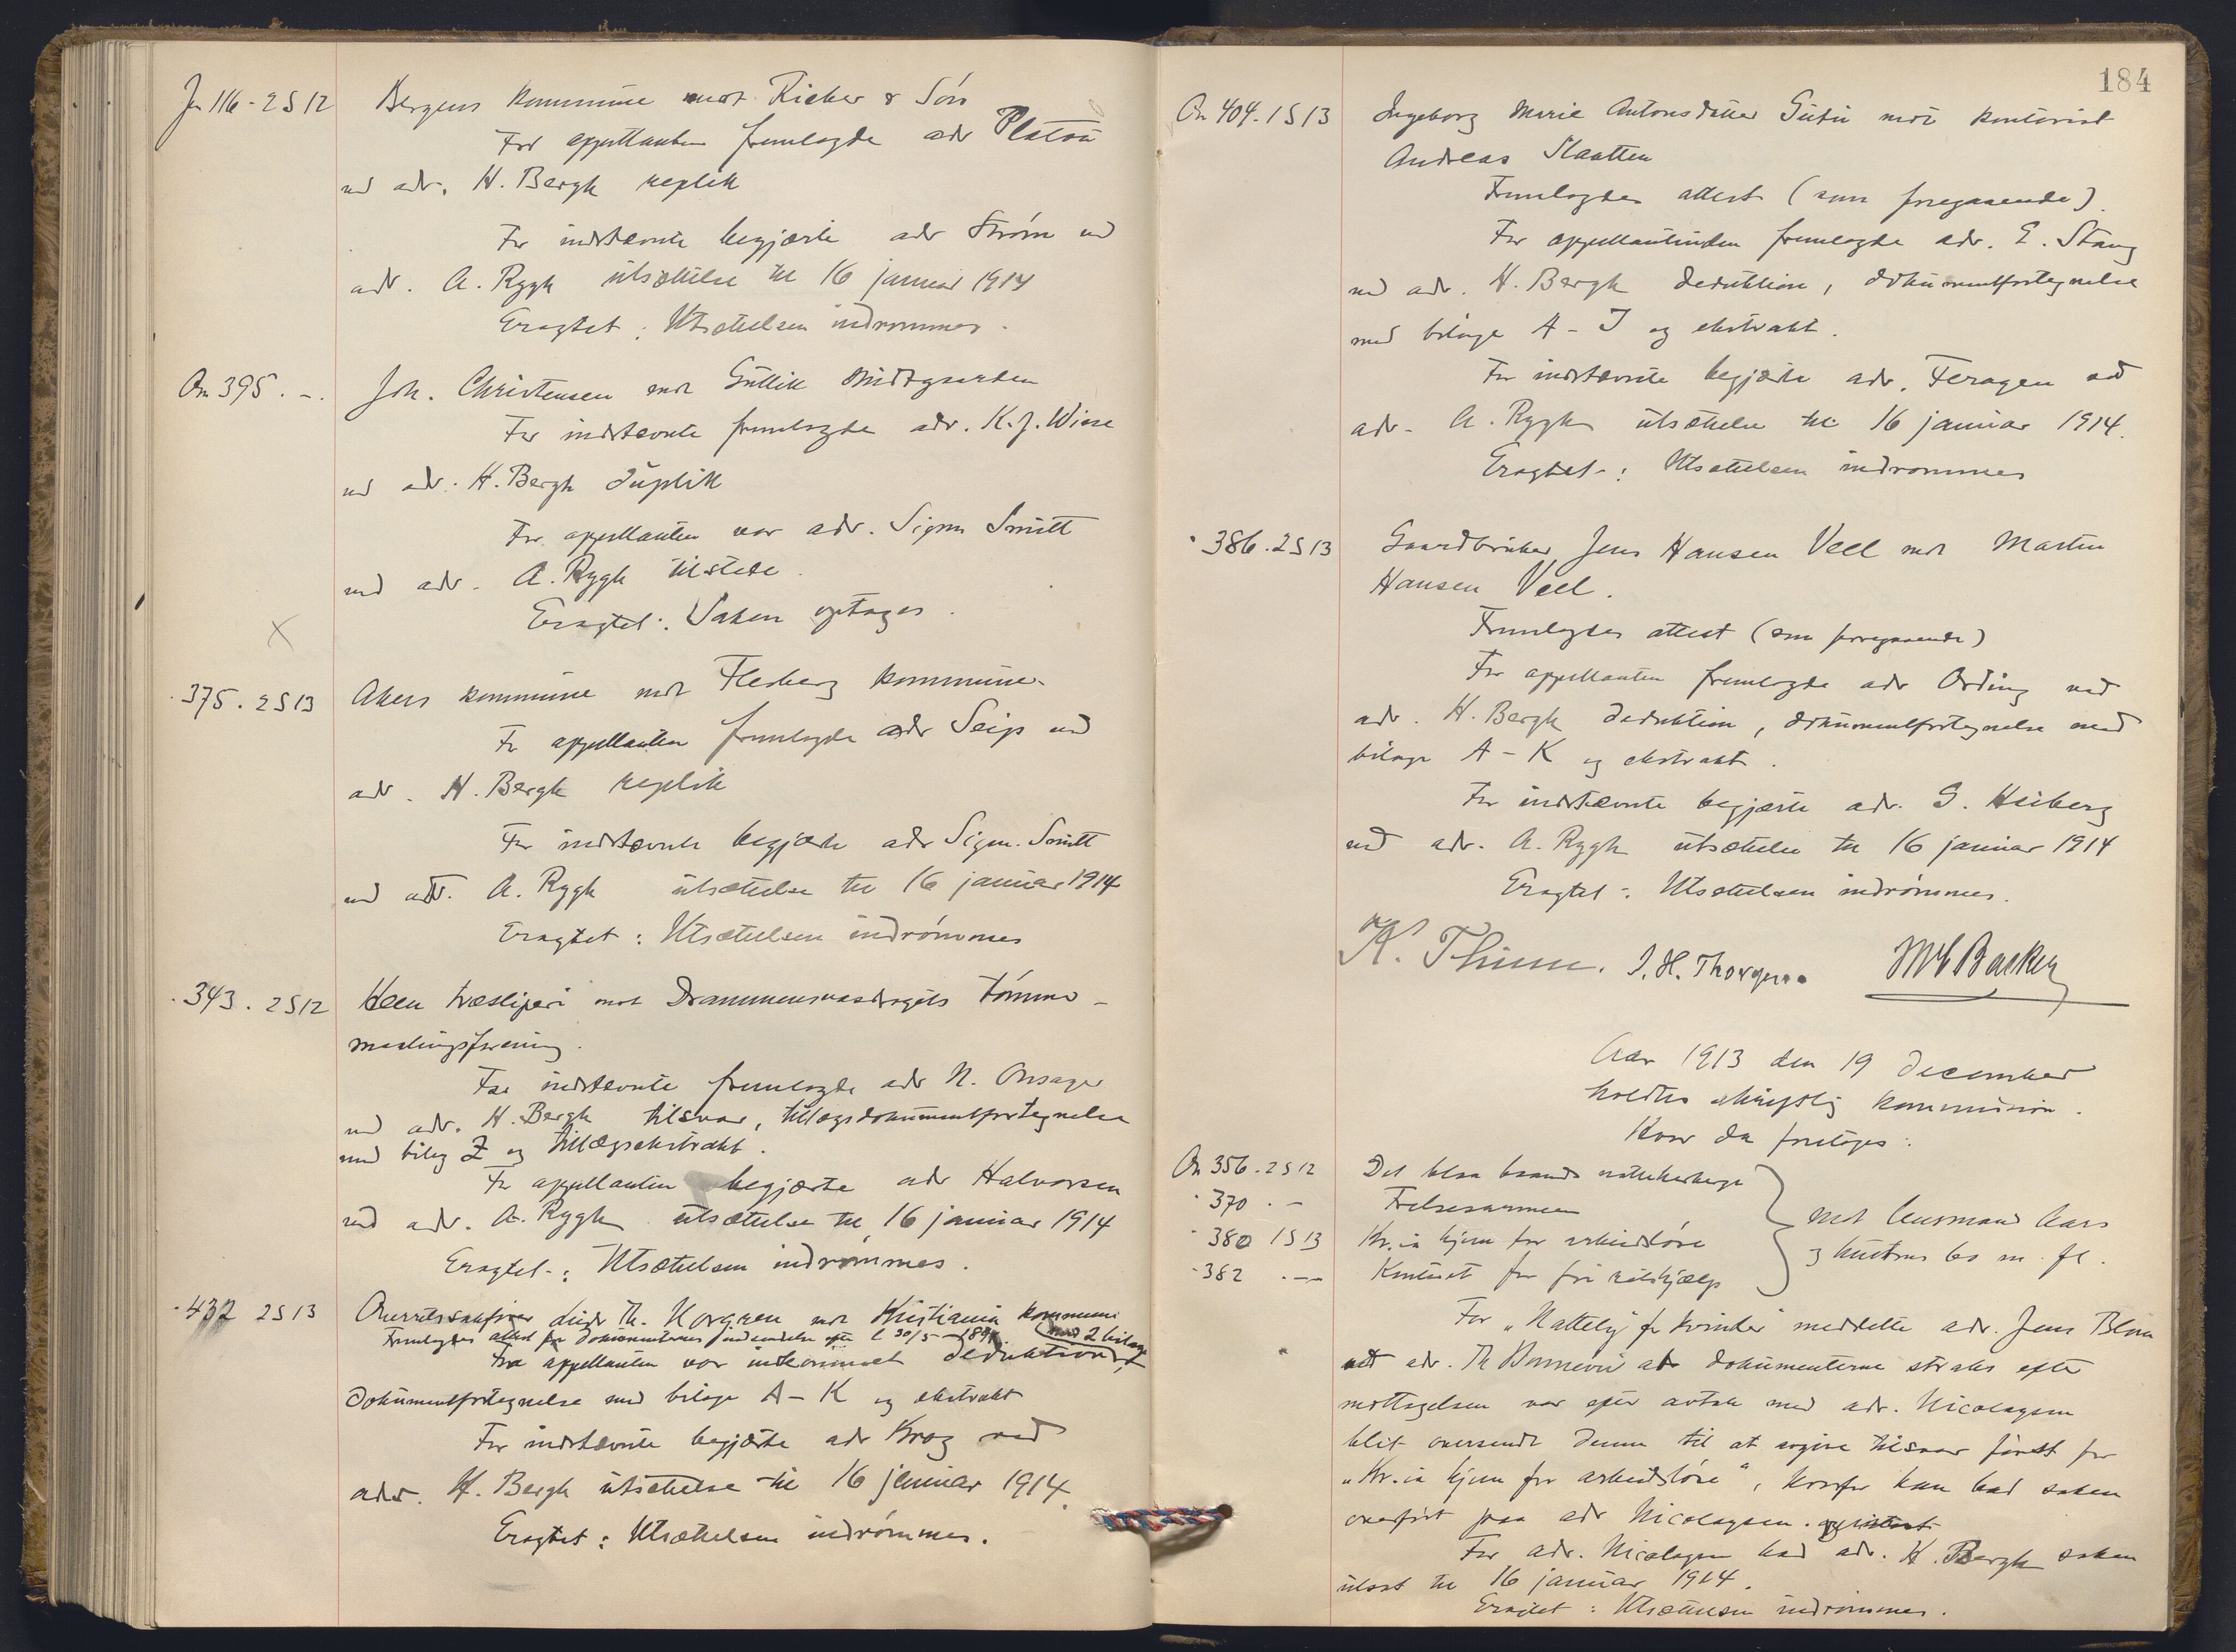 Jn 116 - 2 S 12
Bergens kommune mot Rieber & Sön
For appellanten fremlagde adv Platou
ved adv. H. Bergh replik
For indstævnte begjærte adv Strøm ved
adv. A. Rygh utsættelse til 16 januar 1914
Eragtet: Utsættelsen indrømmes.
On 395 . -
Joh. Christensen mot Gullik Midtgaarden
For indstævnte fremlagde adv. K. J. Wiese
ved adv. H. Bergh duplik
For appellanten var adv. Sigm Smitt
ved adv. A. Rygh tilstede.
Eragtet: Saken optages.
375 . 2 S 13
Akers kommune mot Flesberg kommune.
For appellanten fremlagde adv Seip ved
adv. H. Bergh replik
For indstævnte begjærte adv Sigm. Smitt
ved adv. A. Rygh utsættelse til 16 januar 1914
Eragtet: Utsættelsen indrömmes
343 . 2 S 12
Heen træsliperi mot Drammensvasdragets tömmer-
maalingsforening.
For indstævnte fremlagde adv N. Onsager
ved adv. H. Bergh tilsvar, tillægsdokumentfortegnelse
med bilag Z og tillægsekstrakt.
For appellanten begjærte adv Halvorsen
ved adv. A. Rygh utsættelse til 16 januar 1914
Eragtet: Utsættelsen indrømmes.
432 2 S 13
Overretssakfører Th. Norgren mot Kristiania kommune
Fremlagdes attest for dokumenternes indsendelse efter l 30/5 - 189 med 2 bilage
For appellanten var indkommet deduktion,
dokumentfortegnelse med bilage A - K og ekstrakt
For indstævnte begjærte adv Krag ved
adv. H. Bergh utsættelse til 16 januar 1914.
Eragtet: Utsættelsen indrömmes.
184
On 404. 1 S 13
Ingeborg Marie Antonsdatter mot kontorist
Andreas Slaatten
Fremlagdes attest (som foregaaende).
For appellantinden fremlagde adv. E. Stang
ved adv. H. Bergh deduktion, dokumentfortegnelse
med bilage A - J og ekstrakt.
For indstævnte begjærte adv. Feragen ved
adv. A. Rygh utsættelse til 16 januar 1914.
Eragtet: Utsættelsen indrømmes
386. 2 S 13
Gaardbruker Jens Hansen Veel mot Martin
Hansen Veel.
Fremlagdes attest (som foregaaende)
For appellanten fremlagde adv Ording ved
adv. H. Bergh deduktion, dokumentfortegnelse med
bilage A - K og ekstrakt.
For indstævnte begjærte adv. G. Heiberg
ved adv. A. Rygh utsættelse til 16 januar 1914
Eragtet: Utsættelsen indrömmes.
K. Thime. J. H.
Aar 1913 den 19 december
holdtes skriftlig kommission.
Hvor da foretoges:
On 356. 2 S 12
Det blaa baands natteherberge
370 . -
Frelsesarmeen
380 1 S 13
Kr.ia hjem for arbeidslöse
382 . -
Kontoret for fri retshjælp
mot lensmand Aars
og hustrus bo m. fl.
For "Nattely for kvinder" meddelte adv. Jens Blom
ved adv. Th Bonnevie at dokumenterne straks efter
mottagelsen var efter avtale med adv. Nicolaysen
blit oversendt denne til at avgive tilsvar først for
"Kr.ia hjem for arbeidslöse", hvorfor han bad saken
overfört paa adv Nicolaysen.
For adv. Nicolaysen bad adv. H. Bergh saken
utsat til 16 januar 1914.
Eragtet: Utsættelsen indrømmes.